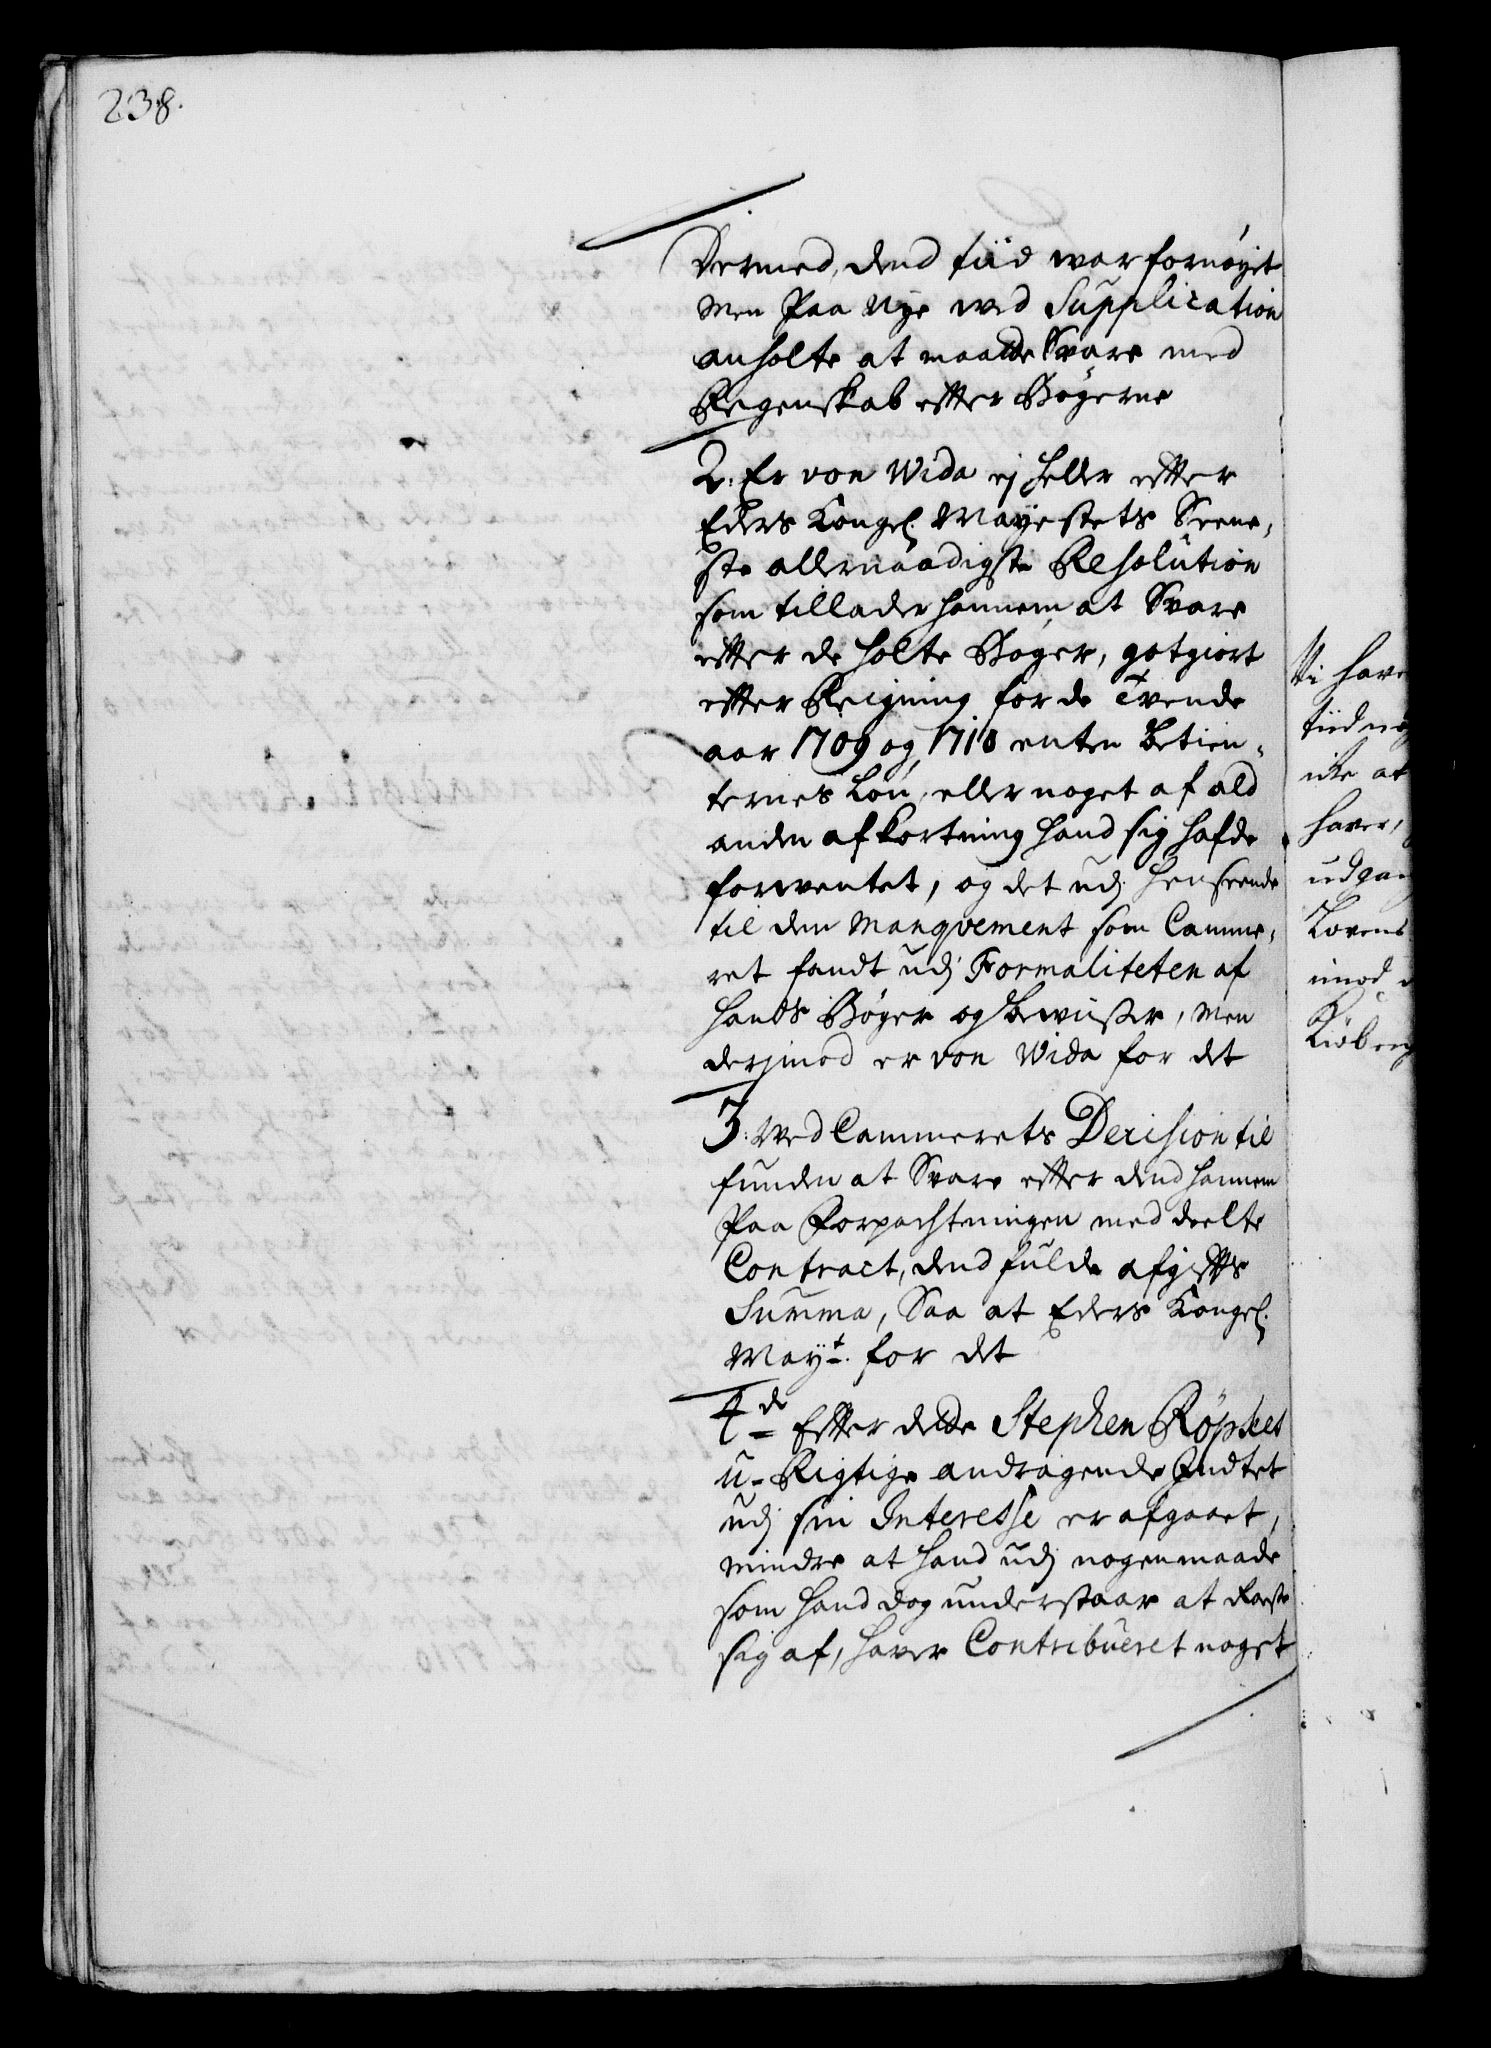 238.
Dermed, dend tiid war fornøyet
Men Paa Nye wed Supplication
anholte at maatte Svare med
Regenskab effter Bøgerne
2. Er von Wida ej heller effter
Eders Kongel. Mayestets Seene,
ste allernaadigste Resolution
som tillader hannem at Svare
effter de holte Bøger, gotgiort
effter Reigning for de Tvende
aar 1709 og 1710 enten Betien,
ternes Løn, eller noget af ald
anden afkortning hand sig hafde
forwentet, og det udj henseende
til den Manqvement som Camme,
ret fandt udj Formaliteten af
hands Bøger og Bewiiser, Men
derjmod er von Wida for det
3. Wed Cammerets Decision til
funden at Svare effter dend hannem
Paa Forpachtningen med deelte
Contract, dend fulde afgiffts
Summa, Saa at Eders Kongel.
Mayt. for det
4de Effter dette Stephen Röpkes
u-Rigtige andragende Indtet
udj sin Interesse er afgaaet,
mindre at hand udj nogen maade
som hand dog understaar at
sig af, haver Contribueret noget
Vi have
tiid
ike at
haver,
udgan
Lovens
imod